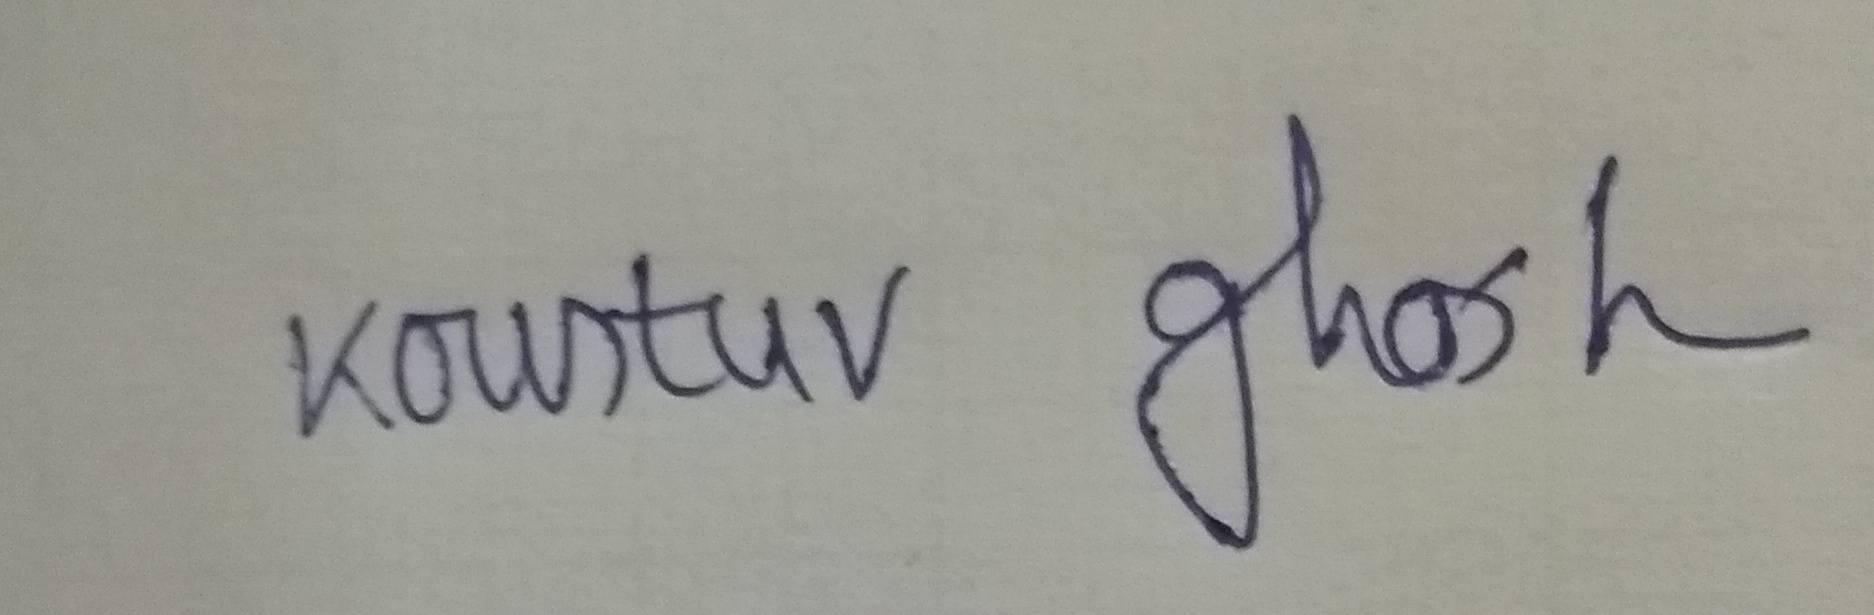 koustuv ghosh